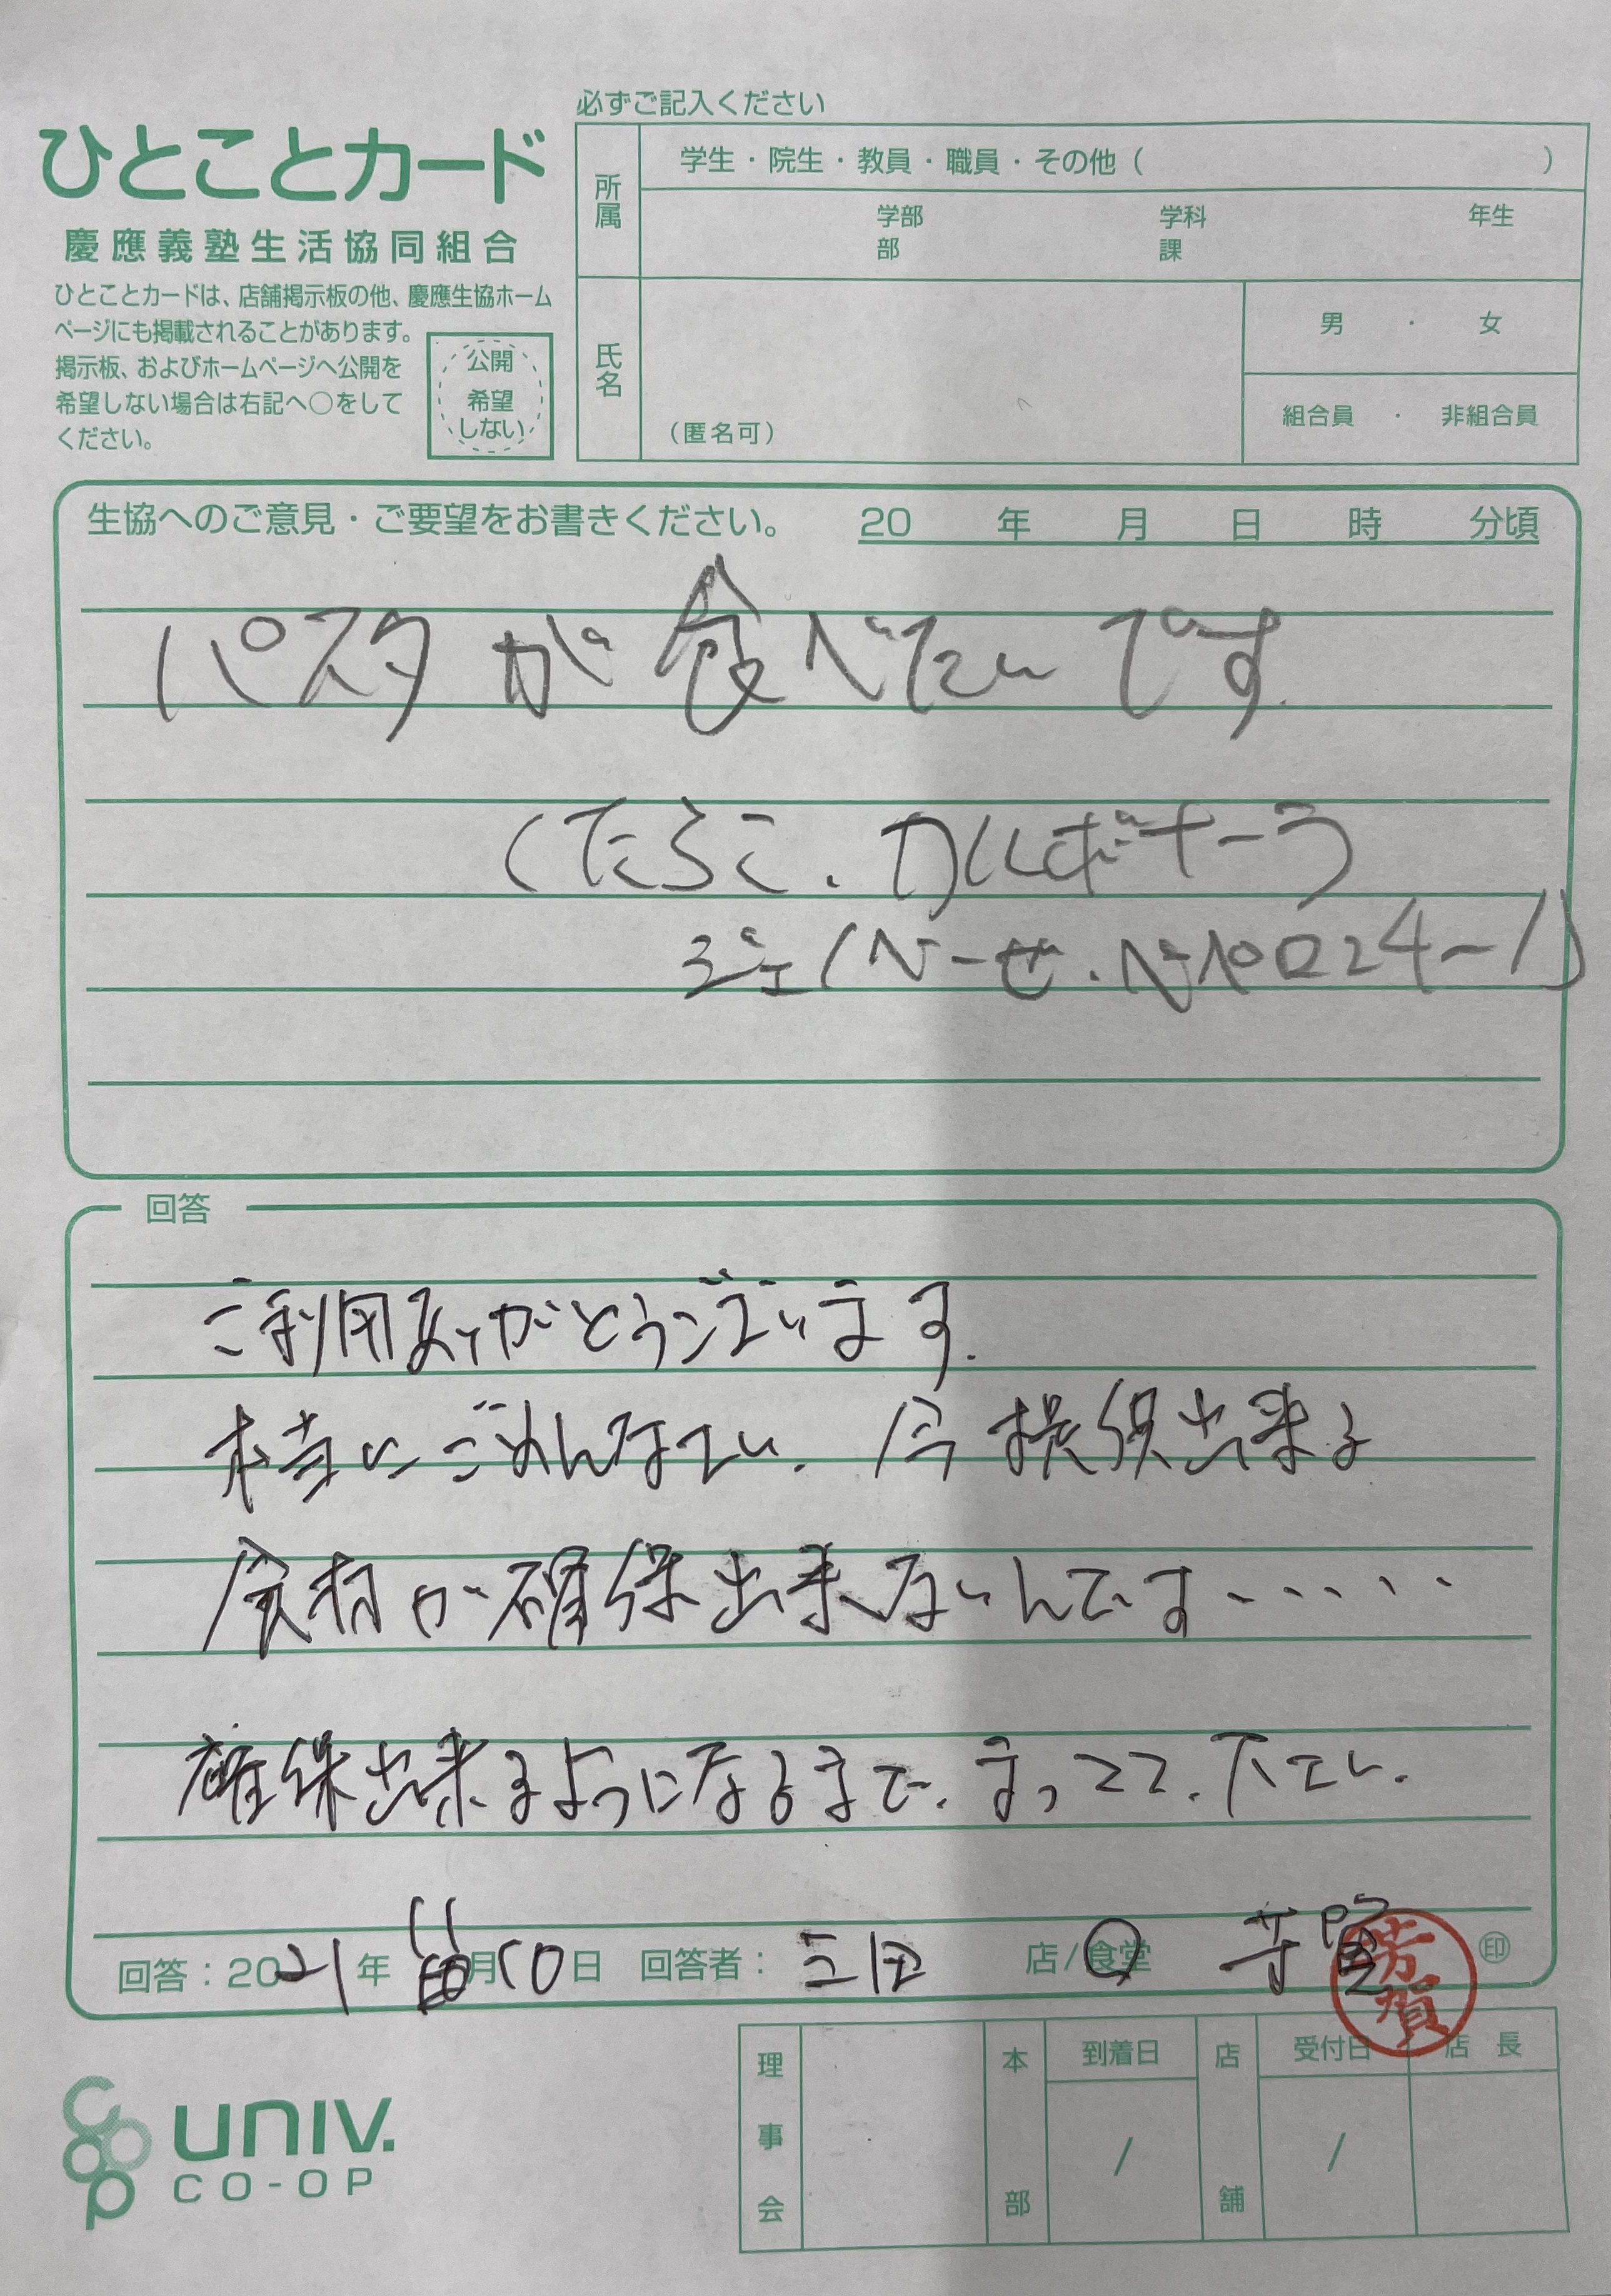 必ずご記入ください
ひとことカード
慶應義塾生活協同組合
ひとことカードは、店舗掲示板の他、慶應生協ホーム
ページにも掲載されることがあります。
掲示板、およびホームページへ公開を
希望しない場合は右記へ○をして
ください。
公開
希望
しない
所属
学生・院生・教員・職員・その他（ ）
学部 学科 年生
部 課
氏名
（匿名可）
男 ・ 女
組合員 ・ 非組合員
生協へのご意見・ご要望をお書きください。 20 年 月 日 時 分頃
パスタが食べたいです.
(たらこ、カルボナーラ
ジェノベーゼ、ペペロンチーノ)
回答
ご利用ありがとうございます.
本当にごめんなさい. 今 提供出来る
食材が確保出来ないんです・・・・・
確保出来るようになるまで、まってて、下さい.
回答：2021年 11月10日 回答者：三田 店/食堂 芳賀 印
芳賀
理事会
本部
到着日
/
店舗
受付日
/
店長
UNIV.
CO-OP